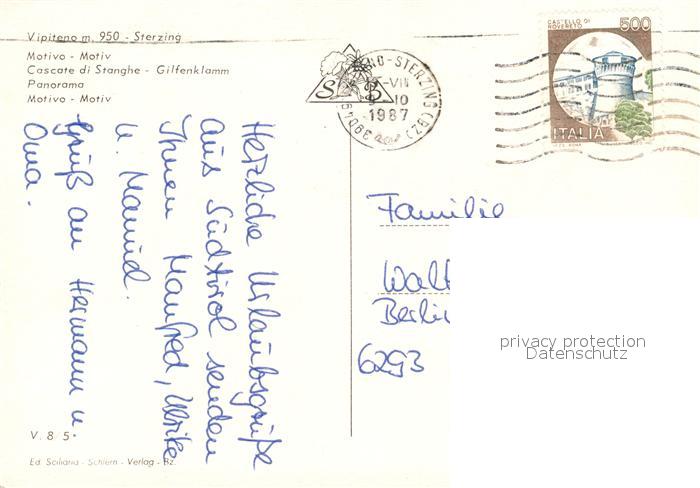 Vipiteno m. 950 - Sterzing
Motivo - Motiv
Cascate di Stanghe - Gilfenklamm
Panorama
Motivo - Motiv
Herzliche Urlaubsgrüße
aus Südtirol senden
Ihnen Manfred, Ulrike
u. Manuel.
Gruß an Hermann u.
Oma.
V. 8/5.
Ed. Siciliana - Schlern - Verlag - Bz.
NO-STERZING (BZ)
-VII
10
1987
39049
S B
CASTELLO DI
ROVERETO
500
ITALIA
Familie
Walt
Berlin
6293
privacy protection
Datenschutz